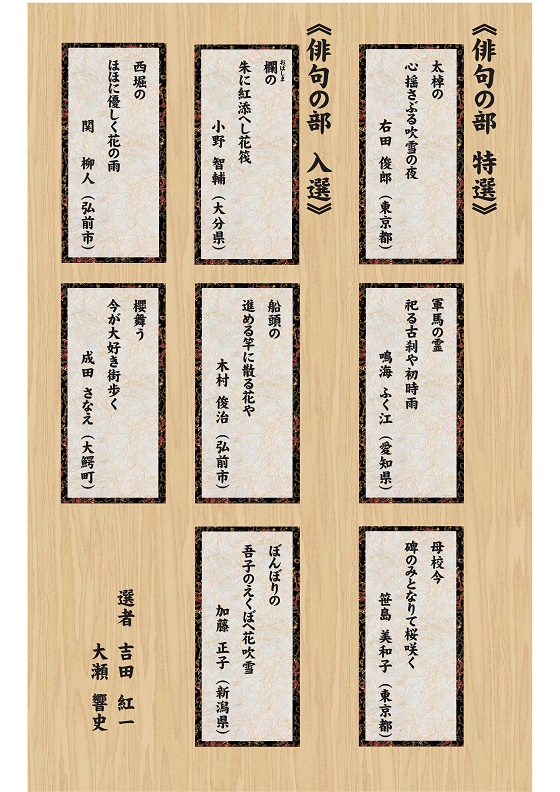 《俳句の部　特選》
太棹の
心揺さぶる吹雪の夜
右田　俊郎（東京都）
軍馬の霊
祀る古刹や初時雨
鳴海　ふく江（愛知県）
母校今
碑のみとなりて桜咲く
笹島　美和子（東京都）
《俳句の部　入選》
欄の
おばしま
朱に紅添へし花筏
小野　智輔（大分県）
船頭の
進める竿に散る花や
木村　俊治（弘前市）
ぼんぼりの
吾子のえくぼへ花吹雪
加藤　正子（新潟県）
西堀の
ほほに優しく花の雨
関　柳人（弘前市）
櫻舞う
今が大好き街歩く
成田　さなえ（大鰐町）
選者　吉田　紅一
大瀬　響史